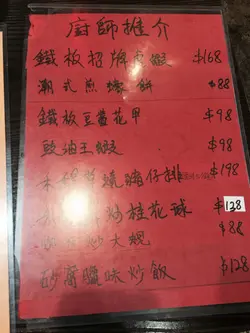 廚師推介
鐵板招牌 蝦 $168
潮式煎蠔餅 $88
鐵板豆醬花甲 $98
豉油王蝦 $98
燒 仔排 $198
炒桂花球 $128
炒大蜆 $88
砂窩臘味炒飯 $128